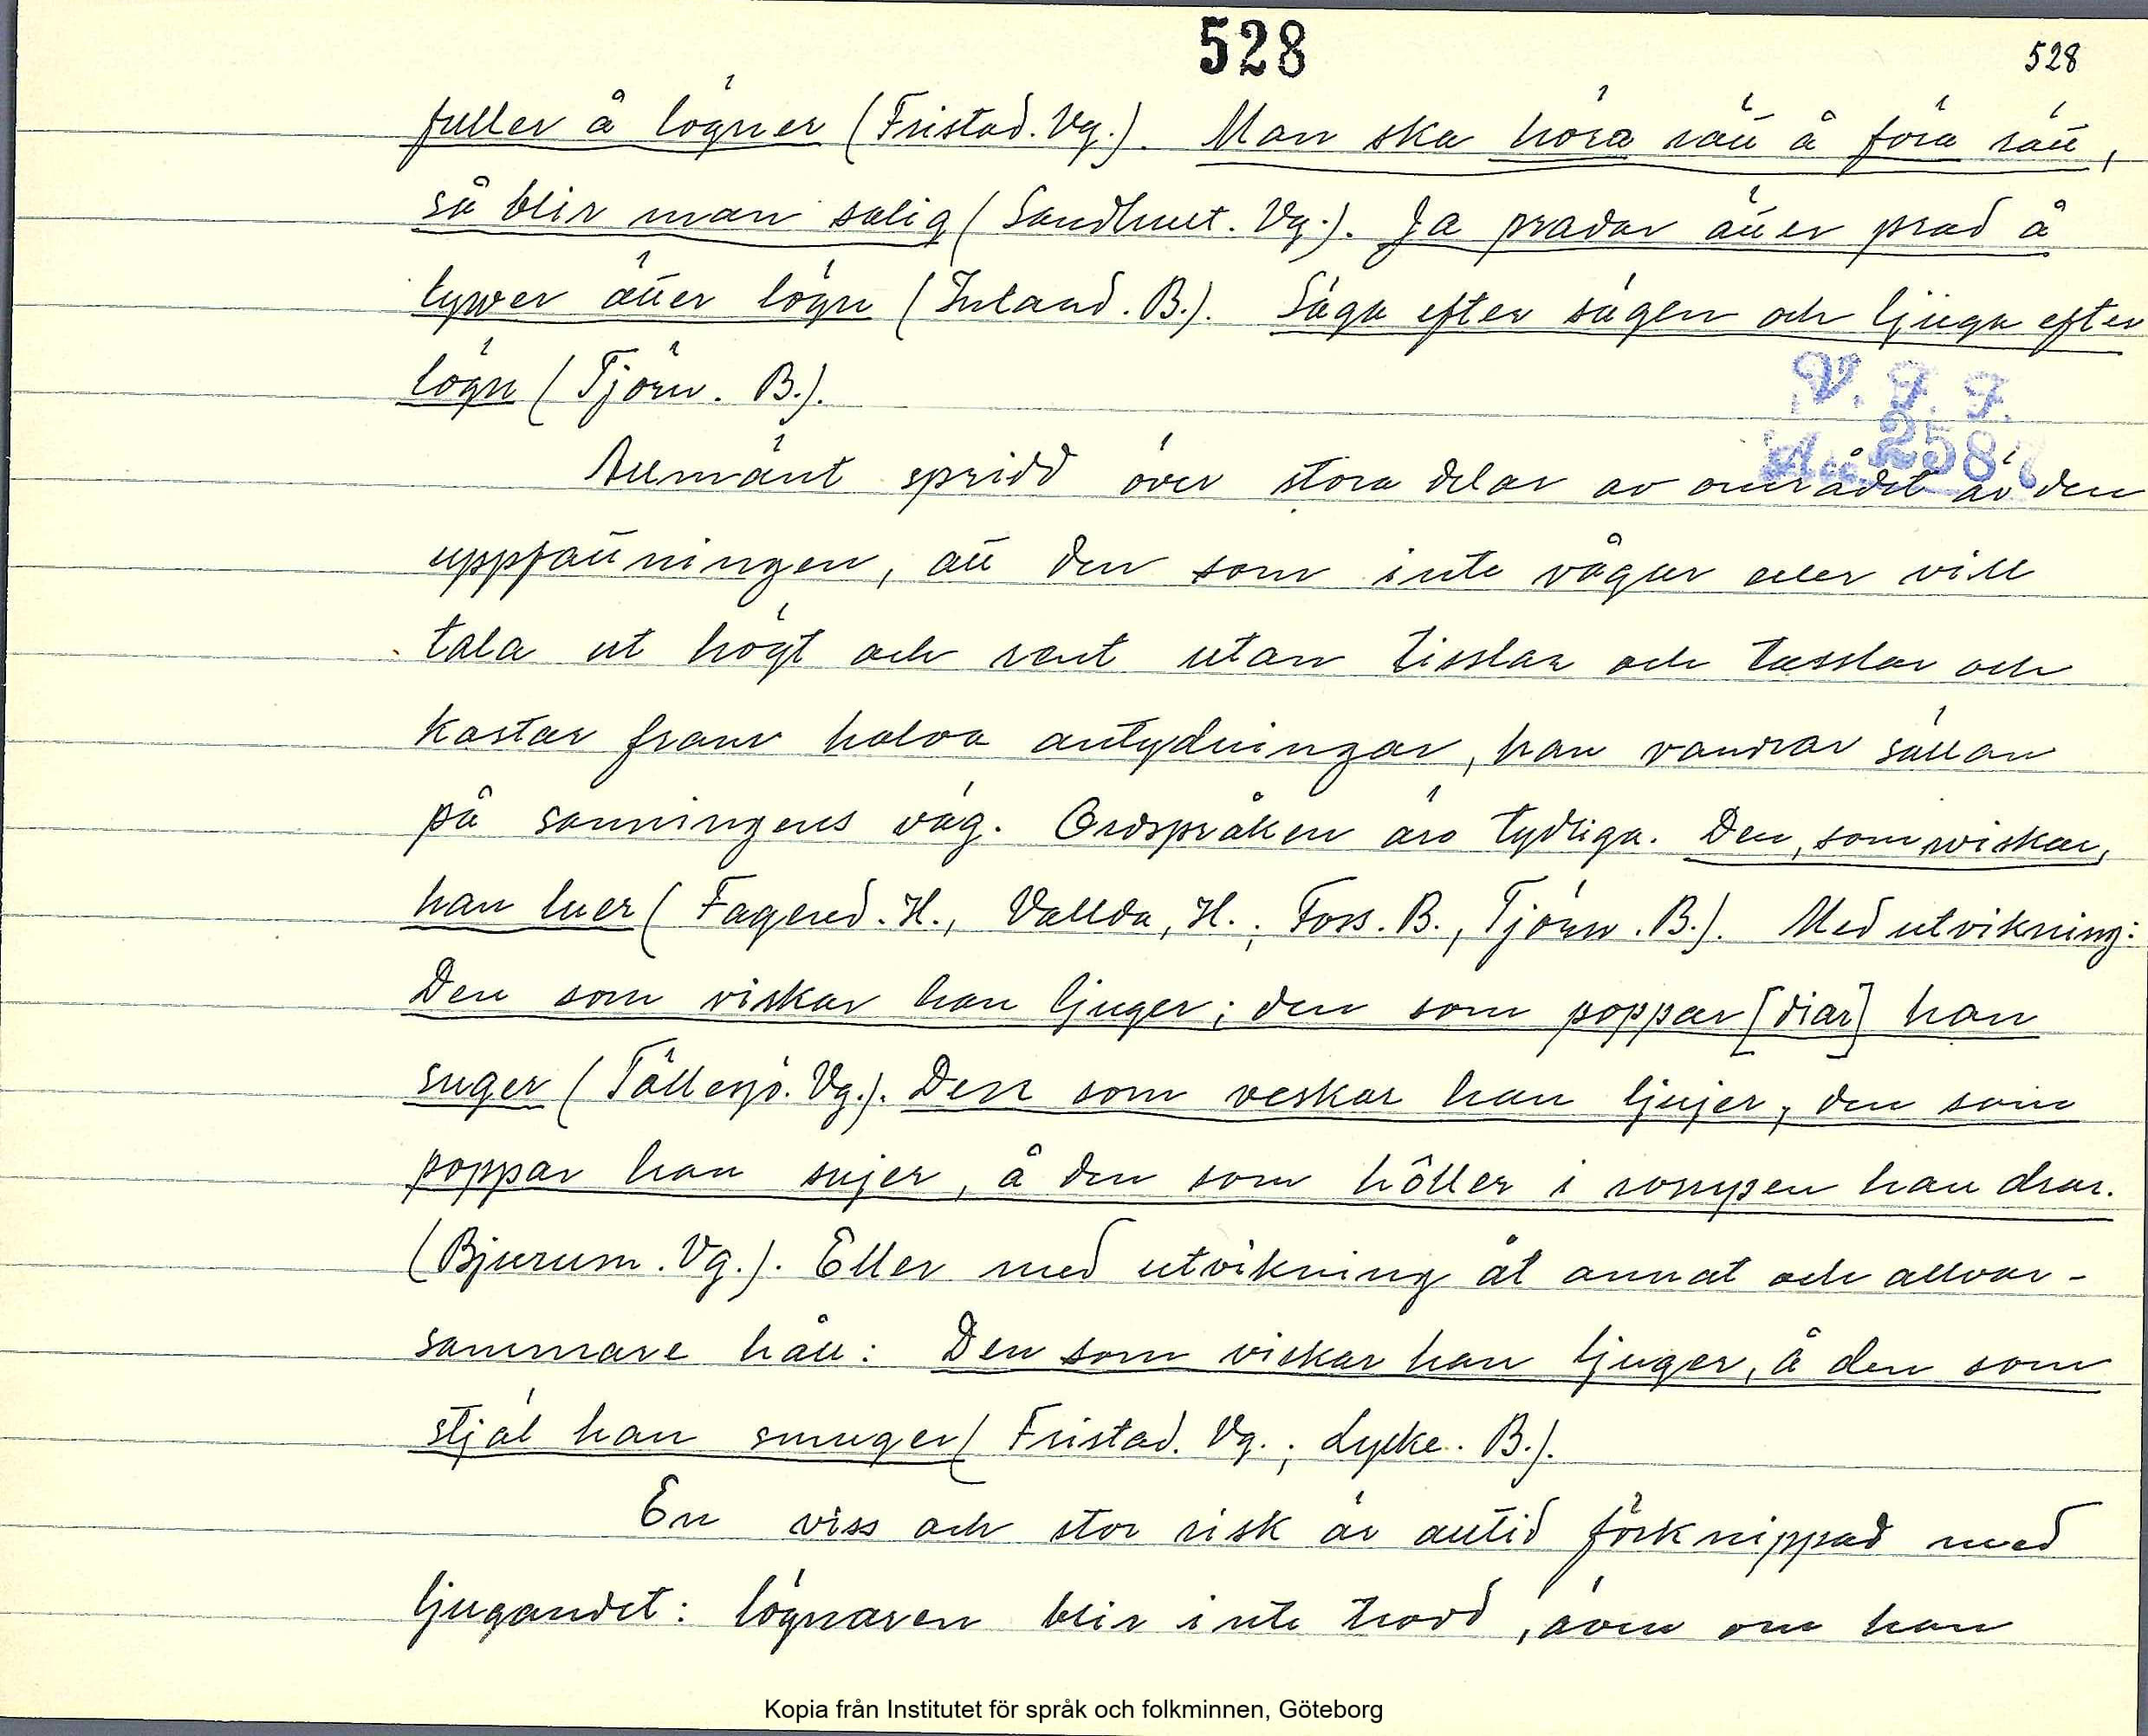 528
528
fuller å lögner (Fristad. Vg.). Man ska höra rätt å föra rätt,
så blir man salig (Sandhult. Vg.). Ja pradar ätter prad å
lyver ätter lögn (Inland. B.). Säga efter sägen och ljuga efter
lögn (Tjörn. B.).
V. F. F.
Acc 2587
Allmänt spridd över stora delar av området är den
uppfattningen, att den som inte vågar eller vill
tala ut högt och rent utan tisslar och tasslar och
kastar fram halva antydningar, han vandrar sällan
på sanningens väg. Ordspråken äro tydliga. Den, som wiskar,
han luer (Fagered. H., Vallda, H.; Foss. B., Tjörn. B.). Med utvikning:
Den som viskar han ljuger; den som poppar [diar] han
suger (Töllesjö. Vg.). Den som veskar han ljujer, den som
poppar han sujer, å den som höller i rompen han drar.
(Bjurum. Vg.). Eller med utvikning åt annat och allvar-
sammare håll: Den som viskar han ljuger, å den som
stjäl han smuger (Fristad. Vg.; Lycke. B.).
En viss och stor risk är alltid förknippad med
ljugandet: lögnaren blir inte trodd, även om han
Kopia från Institutet för språk och folkminnen, Göteborg